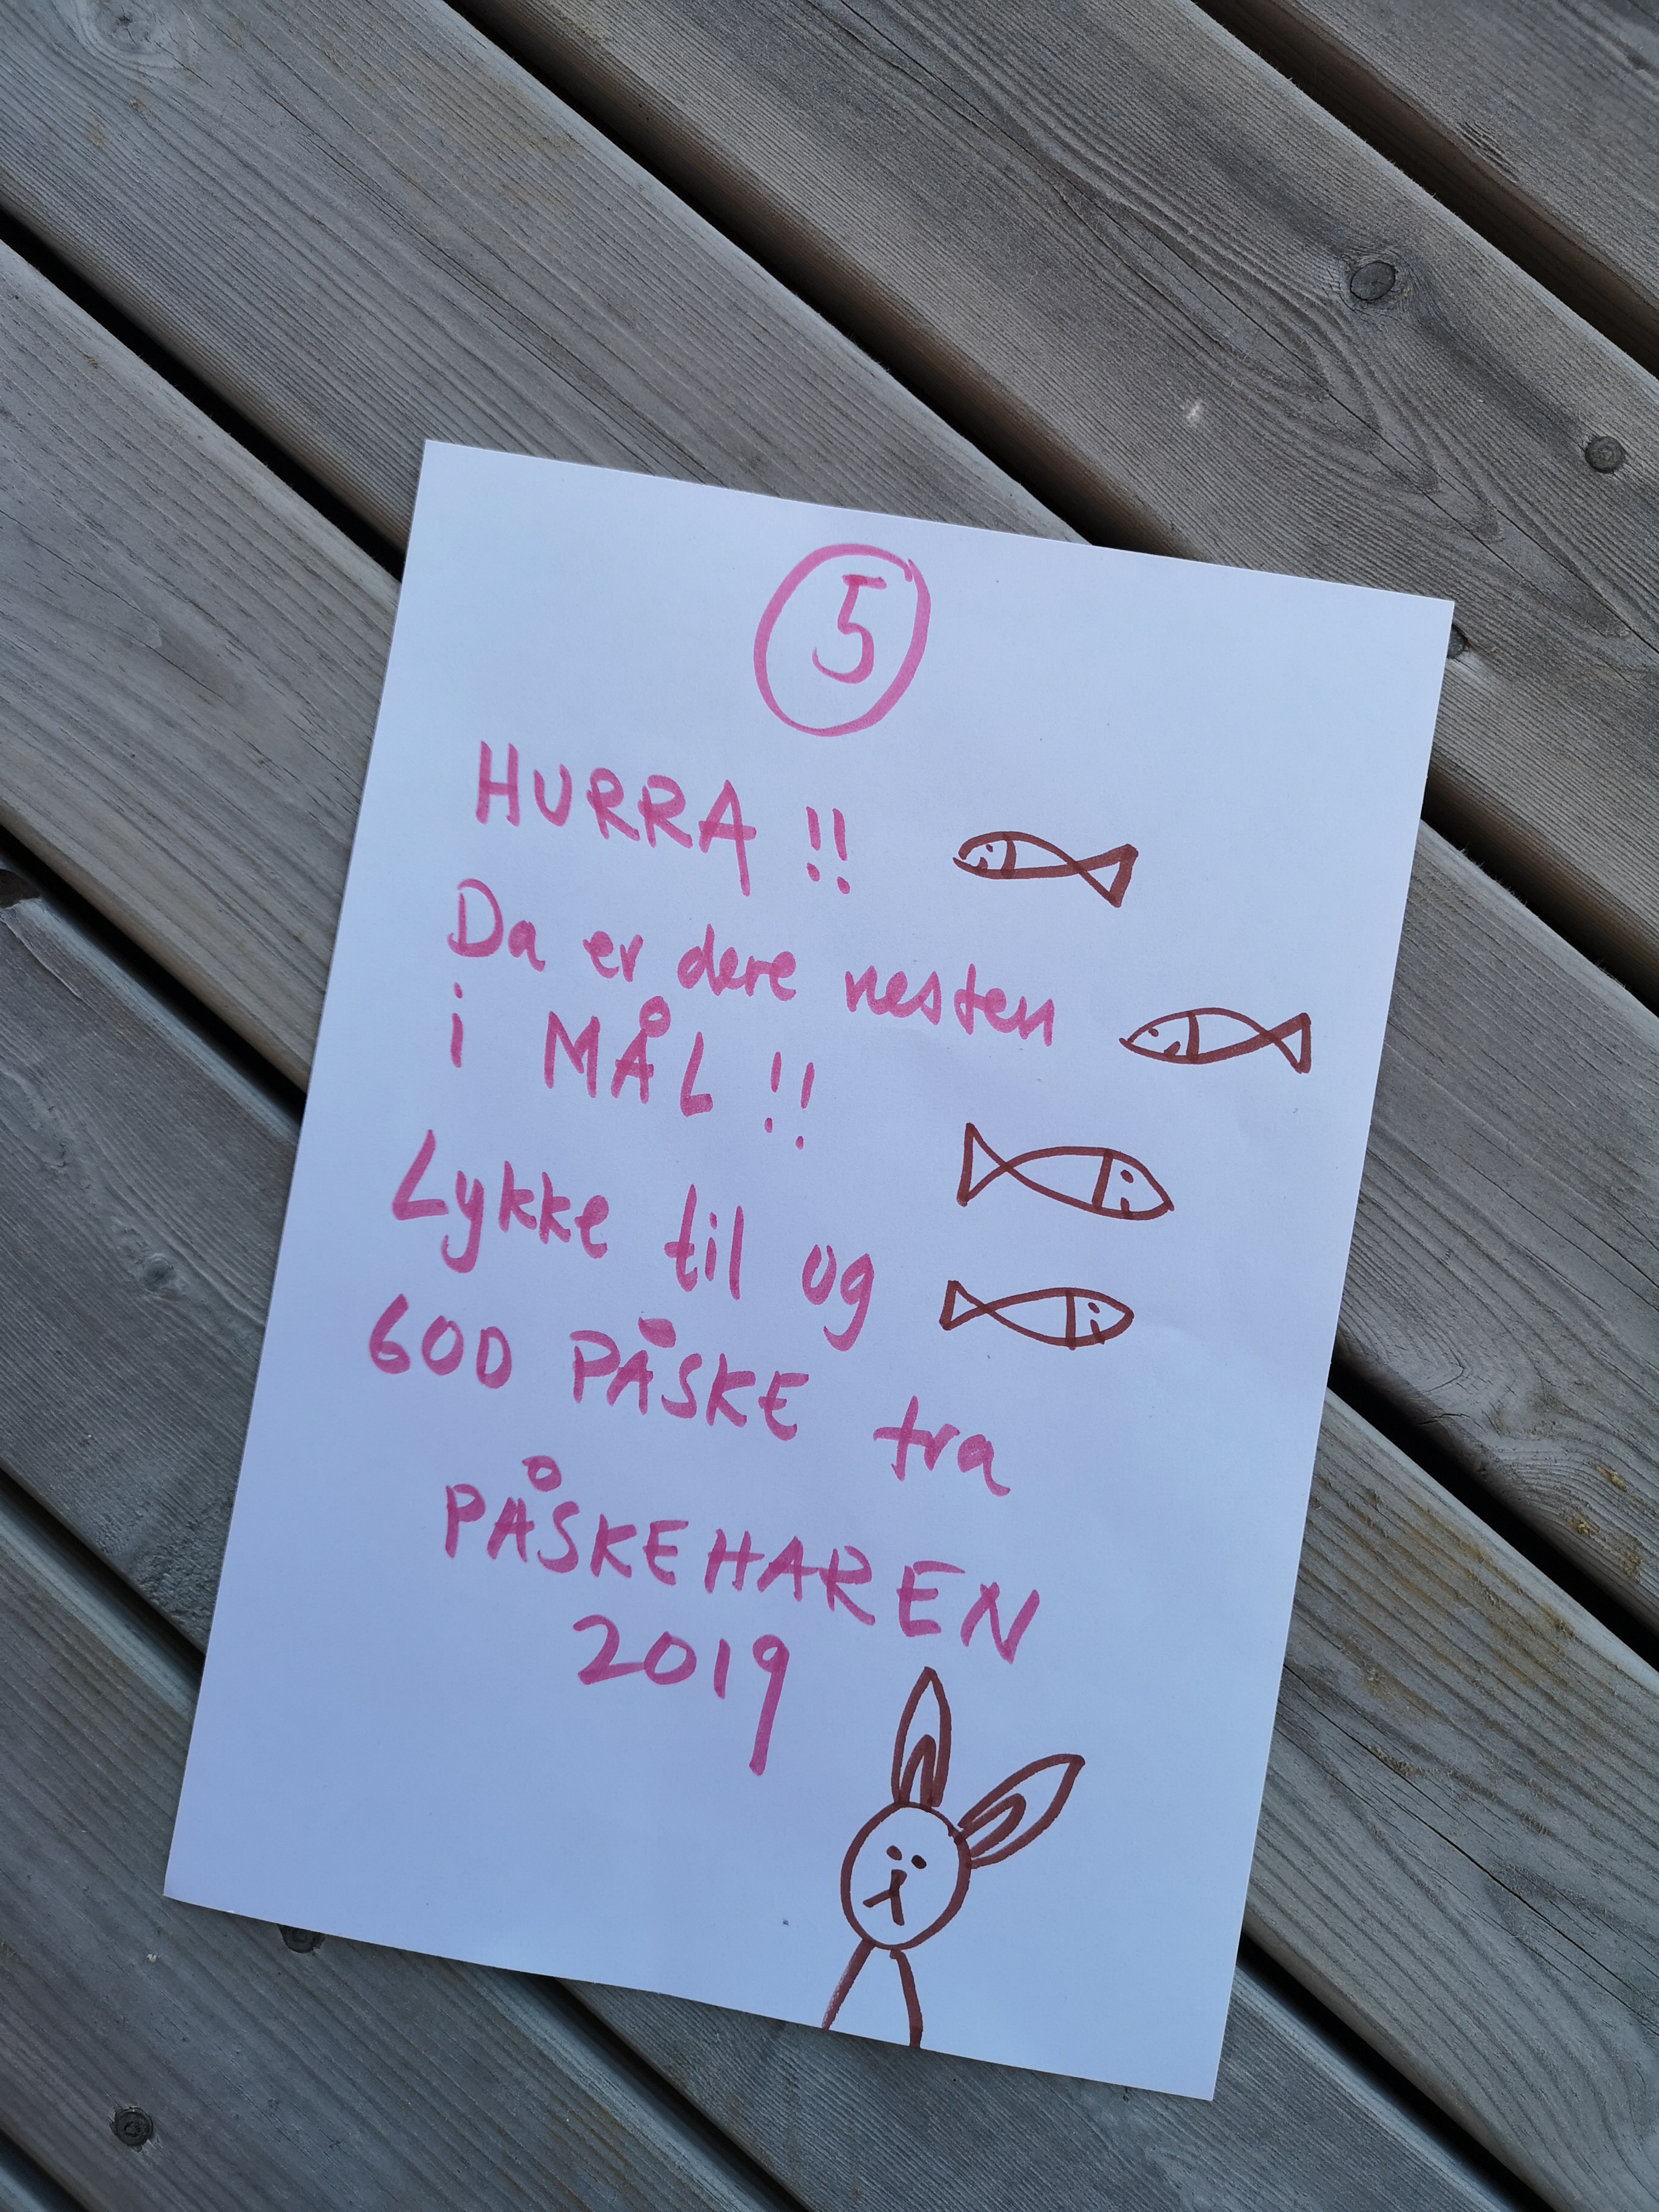 5
HURRA !!
Da er dere nesten
i MÅL !!
Lykke til og
GOD PÅSKE fra
PÅSKEHAREN
2019